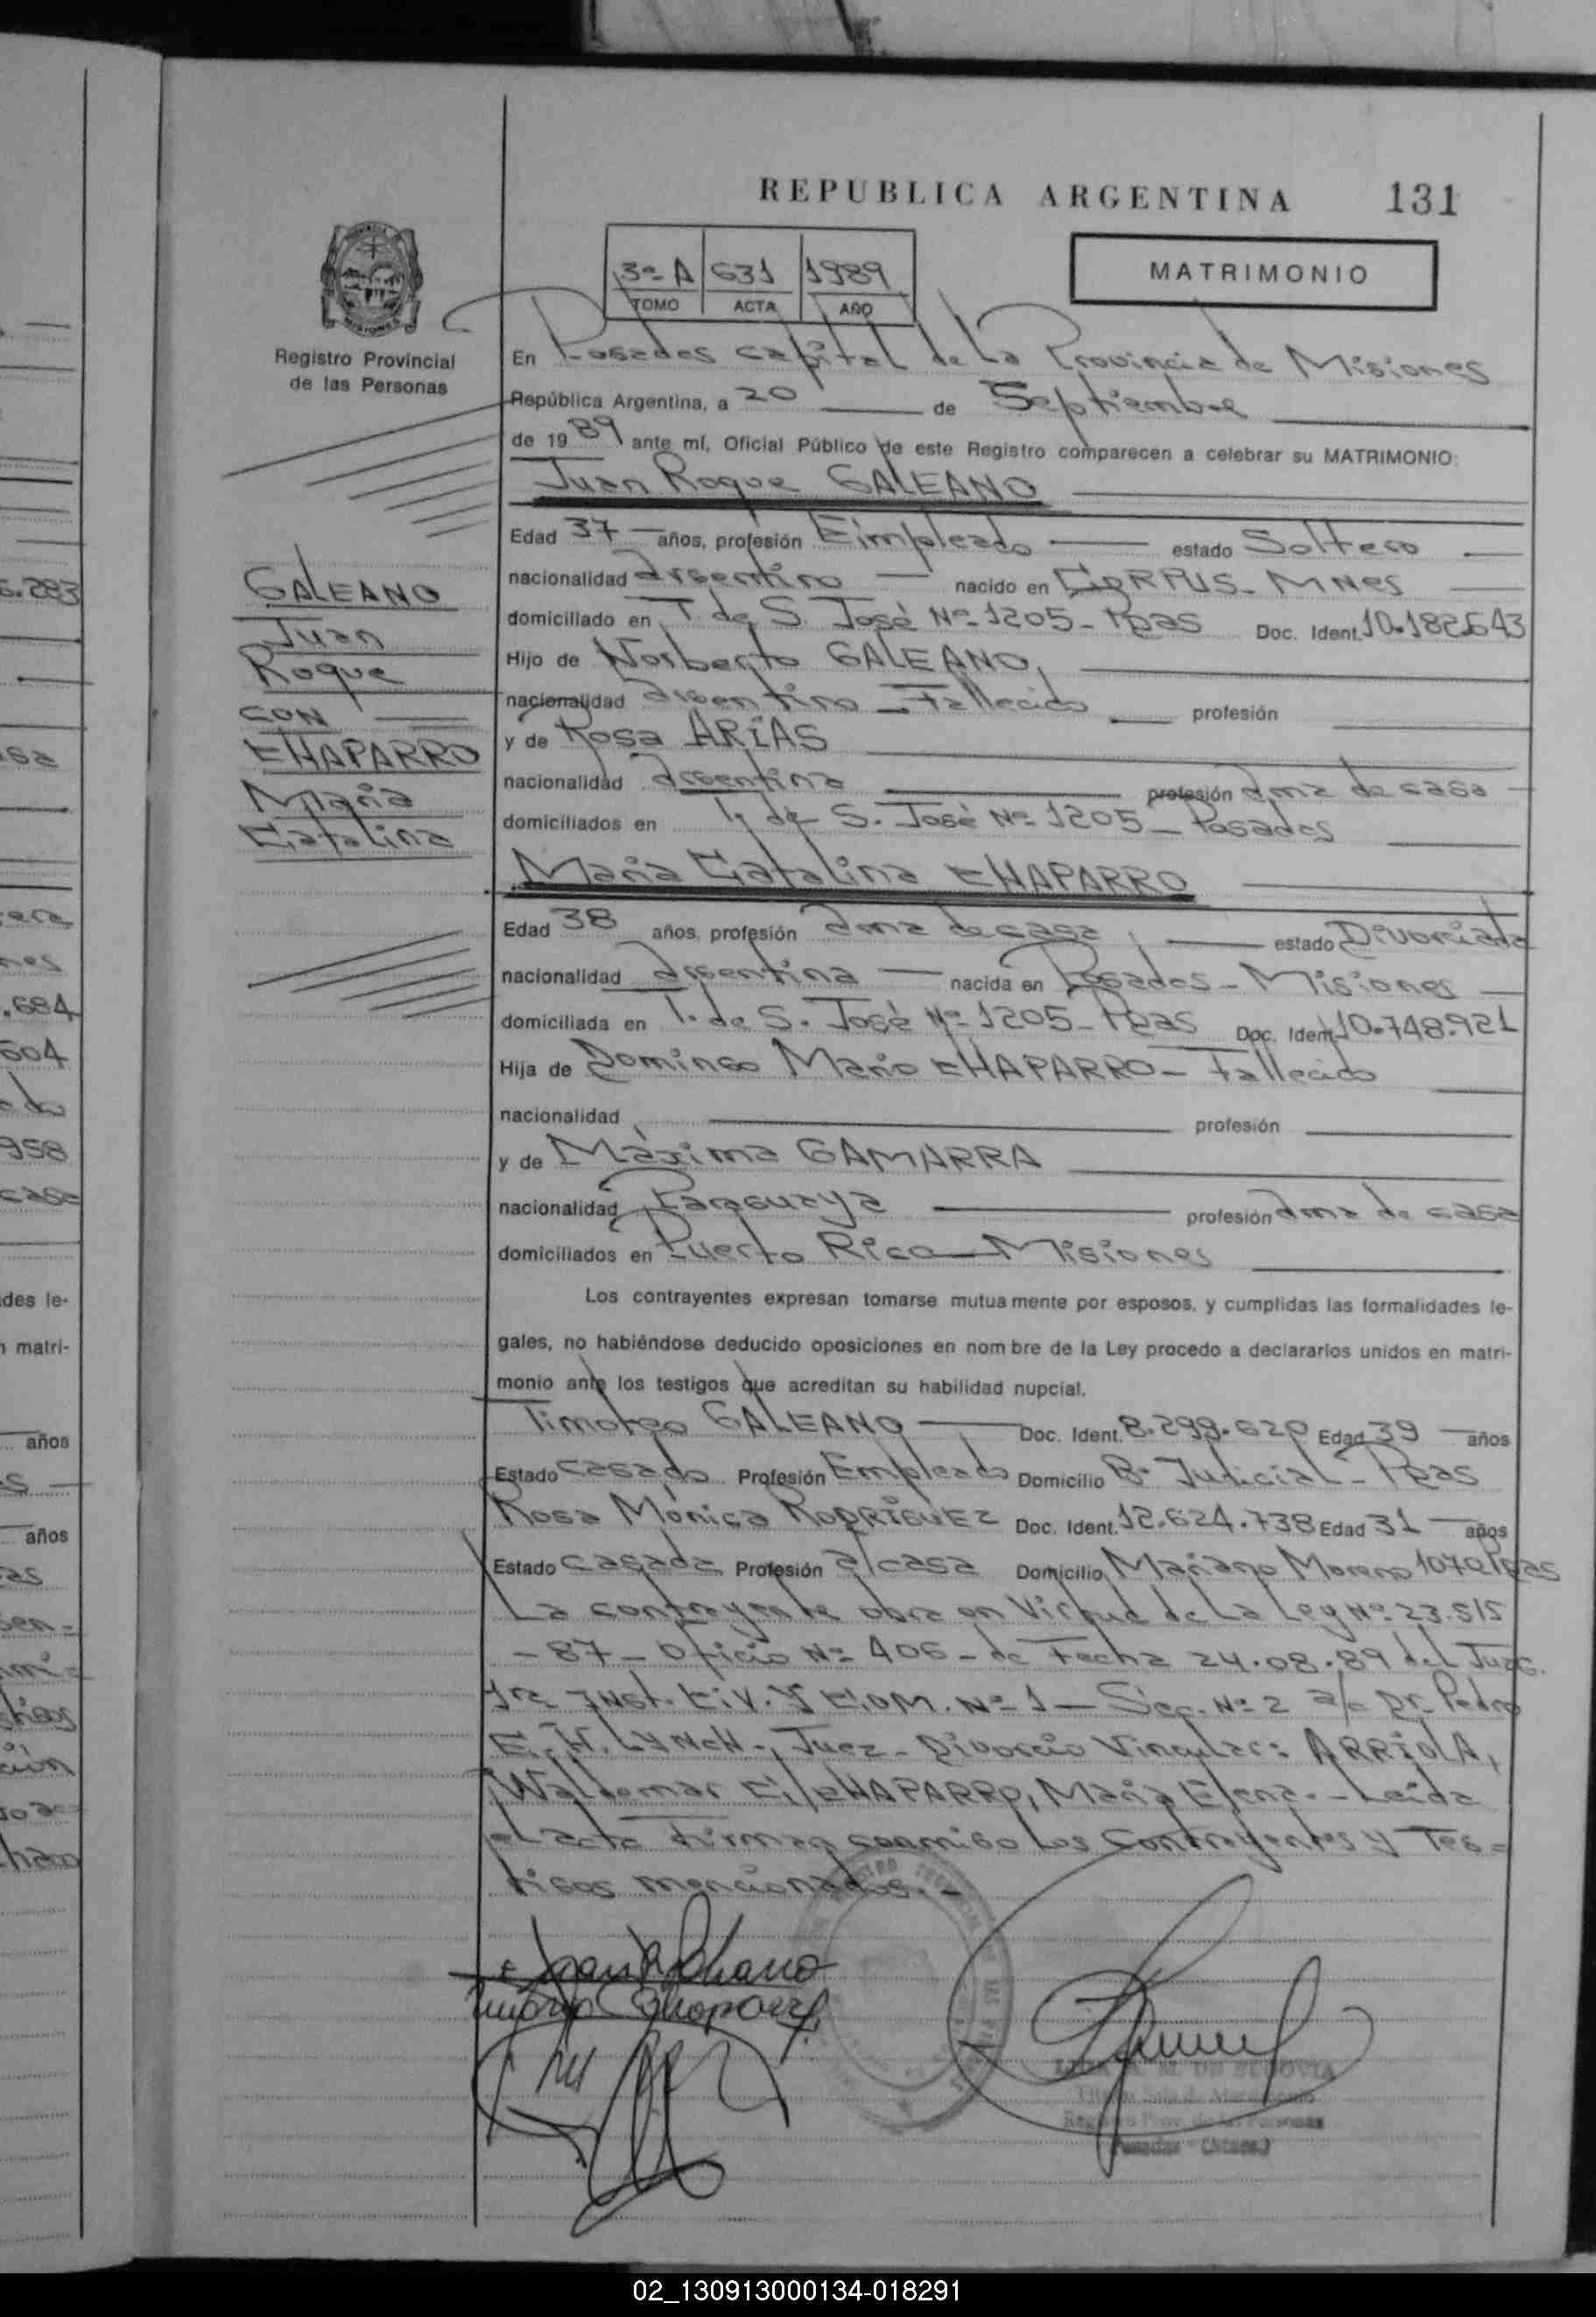 REPUBLICA ARGENTINA 131
MATRIMONIO
3º A 631 1989
TOMO ACTA AÑO
PROVINCIA DE
MISIONES
Registro Provincial
de las Personas
En Posadas capital de la Provincia de Misiones
República Argentina, a 20 de Septiembre
de 1989 ante mí, Oficial Público de este Registro comparecen a celebrar su MATRIMONIO:
Juan Roque GALEANO
Edad 37 años, profesión Empleado estado Soltero
nacionalidad argentino nacido en CORPUS - MNES
domiciliado en T. de S. José Nº 1205 - Pdas Doc. Ident. 10.182.643
Hijo de Norberto GALEANO,
nacionalidad argentino - Fallecido profesión
y de Rosa ARIAS
nacionalidad argentina profesión ama de casa
domiciliados en T. de S. José Nº 1205 - Posadas
María Catalina CHAPARRO
Edad 38 años, profesión ama de casa, estado Divorciada
nacionalidad argentina nacida en Posadas - Misiones
domiciliada en T. de S. José Nº 1205 - Pdas Doc. Ident. 10.748.921
Hija de Domingo Mario CHAPARRO - Fallecido
nacionalidad profesión
y de Máxima GAMARRA
nacionalidad Paraguaya profesión ama de casa
domiciliados en Puerto Rico - Misiones
Los contrayentes expresan tomarse mutuamente por esposos, y cumplidas las formalidades le-
gales, no habiéndose deducido oposiciones en nombre de la Ley procedo a declararlos unidos en matri-
monio ante los testigos que acreditan su habilidad nupcial.
Timoteo GALEANO Doc. Ident. 8.299.620 Edad 39 años
Estado casado Profesión Empleado Domicilio Bº Judicial - Pdas
Rosa Mónica RODRIGUEZ Doc. Ident. 12.624.738 Edad 31 años
Estado casada Profesión a/casa Domicilio Mariano Moreno 1070 Pdas
La contrayente obra en Virtud de La Ley Nº 23.515
- 87 - Oficio Nº 406 - de Fecha 24.08.89 del Juzg.
1ra INST. CIV. Y COM. Nº 1 - Sec. Nº 2 a/c Dr. Pedro
E. H. LYNCH -, Juez - Divorcio Vincular: ARRIOLA,
Waldemar C/ CHAPARRO, María Elena. - Leída
el acta firman conmigo los contrayentes y Tes=
tigos mencionados. -
GALEANO
Juan
Roque
CON
CHAPARRO
María
Catalina
DE SEGOVIA
Posadas (Mnes)
02_130913000134-018291